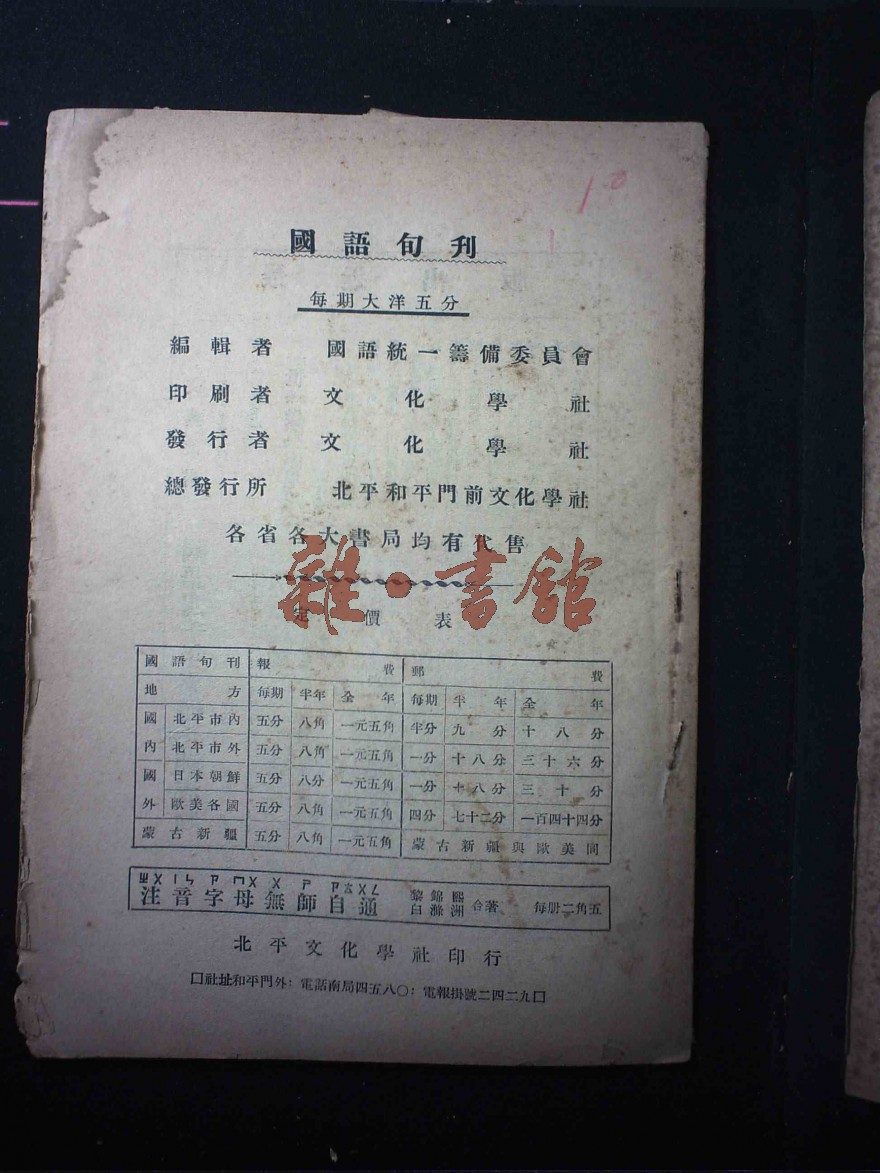 國語旬刊
每期大洋五分
編輯者 國語統一籌備委員會
印刷者 文化學社
發行者 文化學社
總發行所 北平和平門前文化學社
各省各大書局均有代售
雜·書館
定價表
國語旬刊 報費 郵費
地方 每期 半年 全年 每期 半年 全年
國 北平市內 五分 八角 一元五角 半分 九分 十八分
內 北平市外 五分 八角 一元五角 一分 十八分 三十六分
國 日本朝鮮 五分 八分 一元五角 一分 十八分 三十分
外 歐美各國 五分 八角 一元五角 四分 七十二分 一百四十四分
蒙古新疆 五分 八角 一元五角 蒙古新疆與歐美同
注音字母無師自通 黎錦熙 白滌洲 合著、 每册二角五
北平文化學社印行
囗社址和平門外；電話南局四五八〇；電報掛號二四二九囗